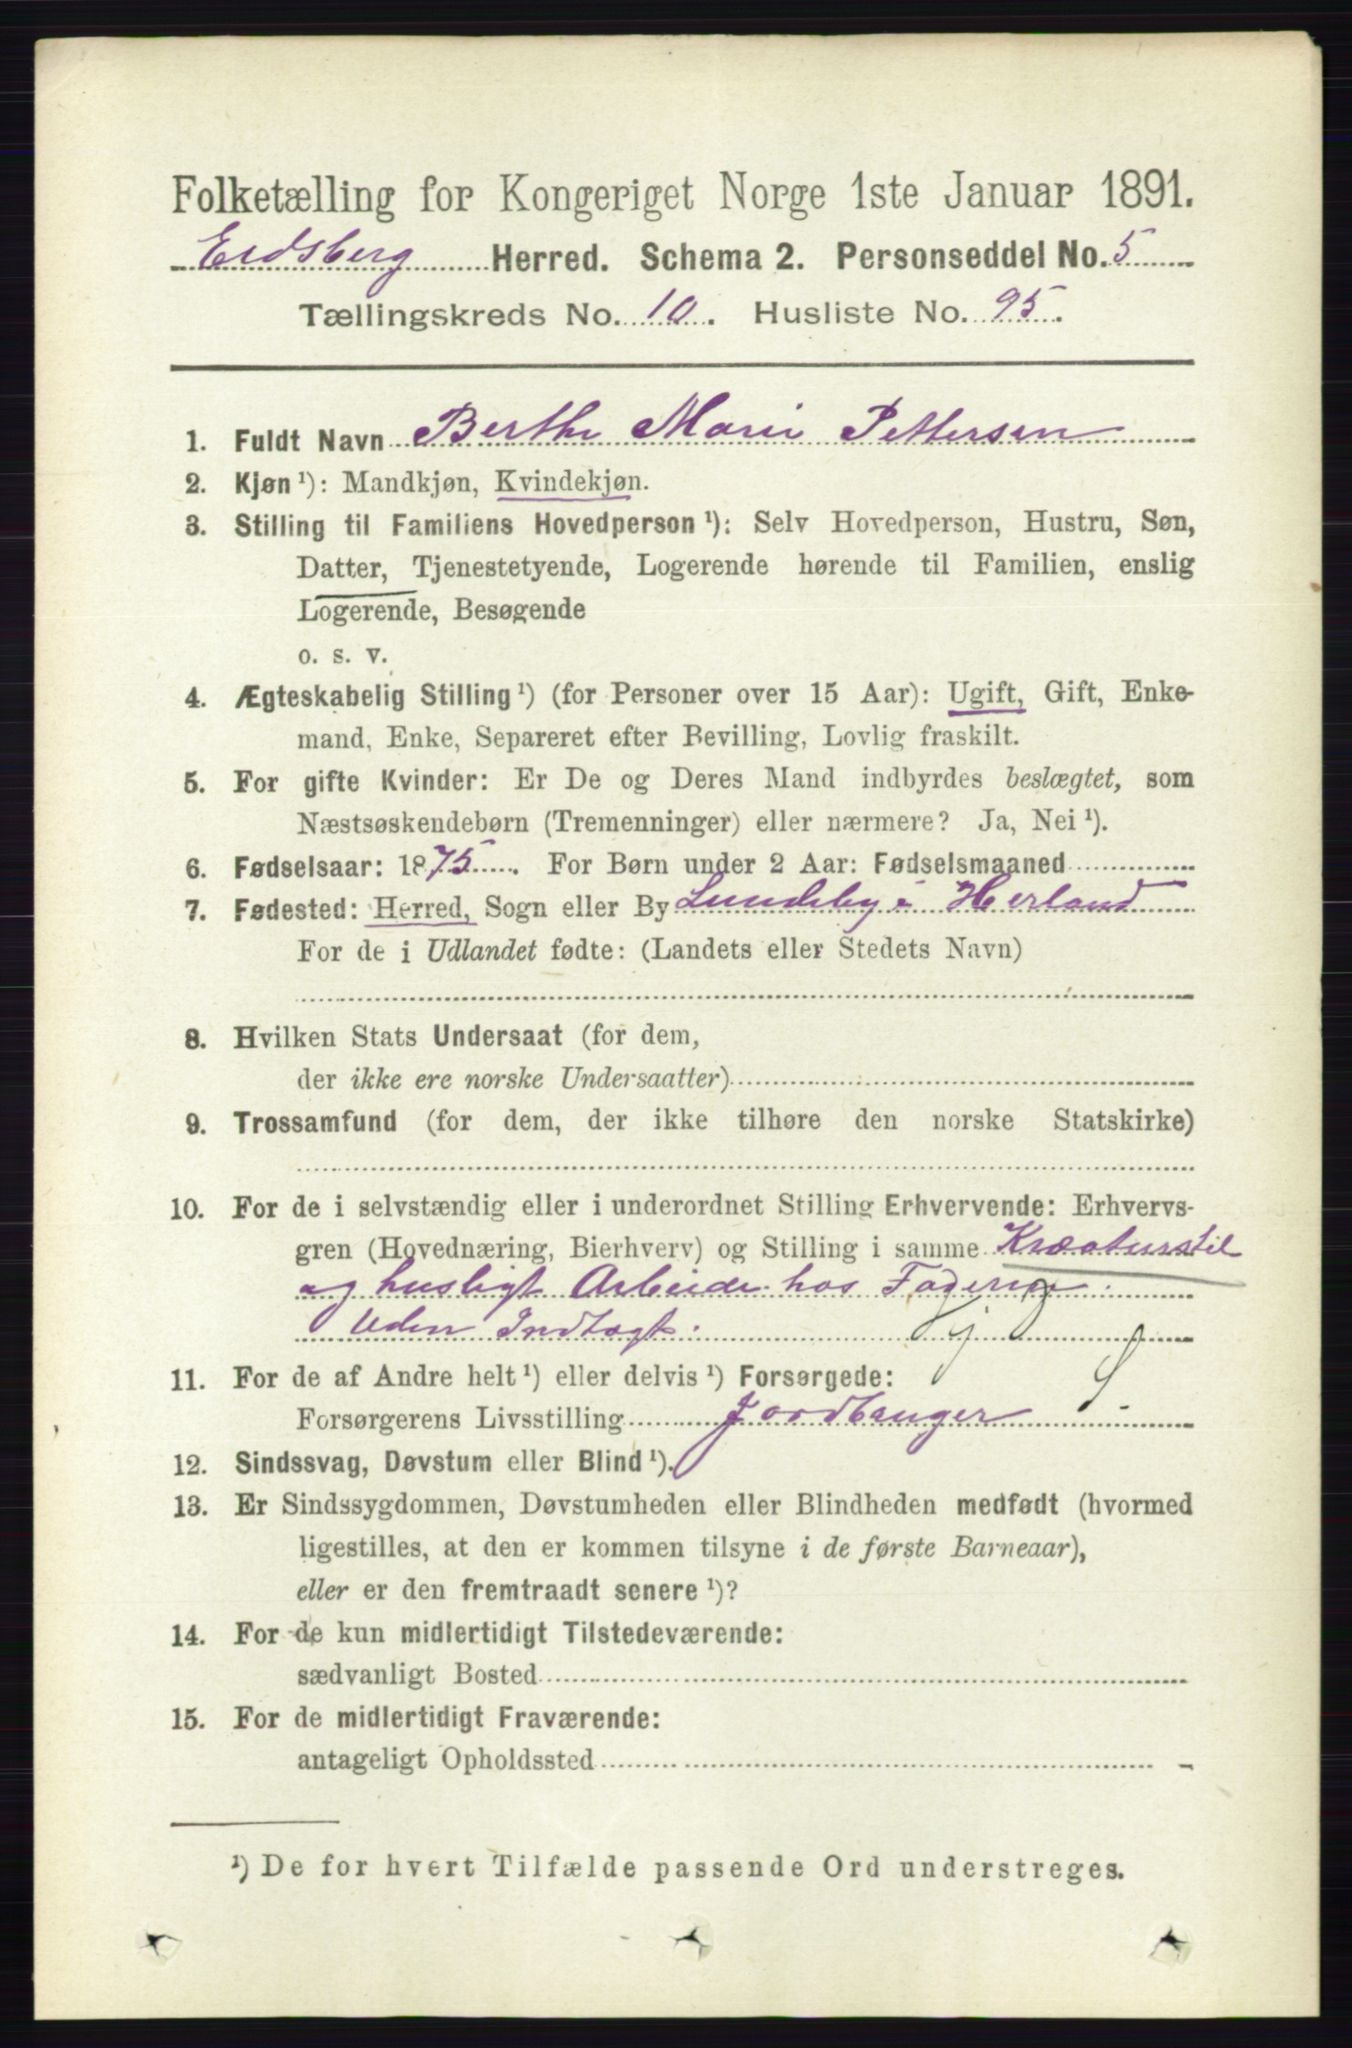 Folketælling for Kongeriget Norge 1ste Januar 1891.
Eidsberg Herred. Schema 2. Personseddel No. 5
Tællingskreds No. 10. Husliste No. 95.
1. Fuldt Navn Berthe Marie Pettersen
2. Kjøn ¹): Mandkjøn, Kvindekjøn.
3. Stilling til Familiens Hovedperson ¹): Selv Hovedperson, Hustru, Søn,
Datter, Tjenestetyende, Logerende hørende til Familien, enslig
Logerende, Besøgende
o. s. v.
4. Ægteskabelig Stilling ¹) (for Personer over 15 Aar): Ugift, Gift, Enke-
mand, Enke, Separeret efter Bevilling, Lovlig fraskilt.
5. For gifte Kvinder: Er De og Deres Mand indbyrdes beslægtet, som
Næstsøskendebørn (Tremenninger) eller nærmere? Ja, Nei ¹).
6. Fødselsaar: 1875. For Børn under 2 Aar: Fødselsmaaned
7. Fødested: Herred, Sogn eller By Lundeby i Herland
For de i Udlandet fødte: (Landets eller Stedets Navn)
8. Hvilken Stats Undersaat (for dem,
der ikke ere norske Undersaatter)
9. Trossamfund (for dem, der ikke tilhøre den norske Statskirke)
10. For de i selvstændig eller i underordnet Stilling Erhvervende: Erhvervs-
gren (Hovednæring, Bierhverv) og Stilling i samme Kreaturstel
og husligt Arbeide hos Faderen.
Uden Indtægt.
11. For de af Andre helt ¹) eller delvis ¹) Forsørgede:
Forsørgerens Livsstilling Jordbruger S.
12. Sindssvag, Døvstum eller Blind ¹).
13. Er Sindssygdommen, Døvstumheden eller Blindheden medfødt (hvormed
ligestilles, at den er kommen tilsyne i de første Barneaar),
eller er den fremtraadt senere ¹)?
14. For de kun midlertidigt Tilstedeværende:
sædvanligt Bosted
15. For de midlertidigt Fraværende:
antageligt Opholdssted
¹) De for hvert Tilfælde passende Ord understreges.